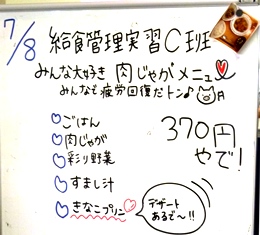 7/8
給食管理実習C班
みんな大好き 肉じゃがメニュー
みんなも疲労回復だトン♪
ごはん
肉じゃが
彩り野菜
すまし汁
きなこプリン
370円
やで!
デザート
あるで〜!!